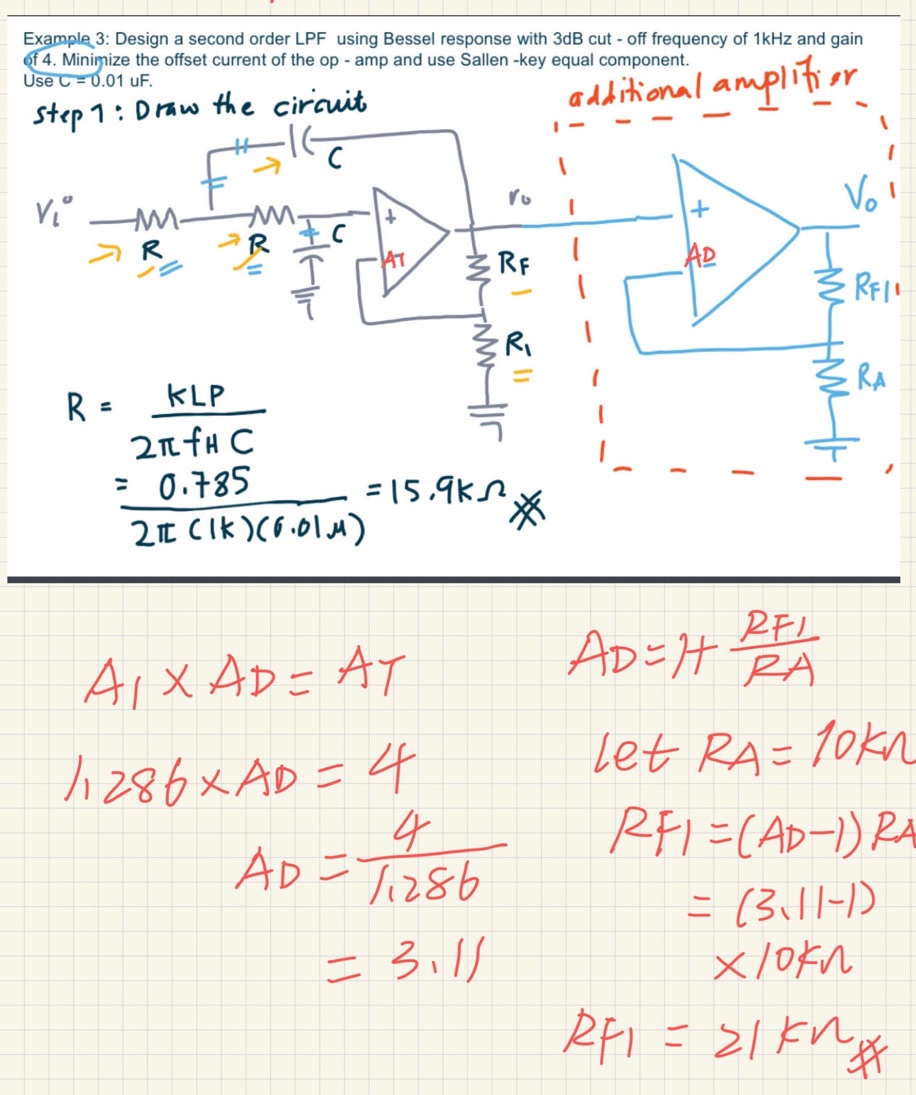 Example 3: Design a second order LPF using Bessel response with 3dB cut - off frequency of 1kHz and gain
of 4. Minimize the offset current of the op - amp and use Sallen -key equal component.
Use C = 0.01 uF.
additional amplifier
Step 1: Draw the circuit
C
Vi
R
R
C
+
AT
vo
RF
R1
+
AD
Vo
RF1
RA
R = KLP
2π fH C
= 0.785
2π (1k)(0.01μ)
= 15.9kΩ
A1 × AD = AT
1.286 × AD = 4
AD = 4
1.286
= 3.11
AD = 1+ RF1
RA
let RA = 10kΩ
RF1 = (AD-1) RA
= (3.11-1)
× 10kΩ
RF1 = 21 kΩ